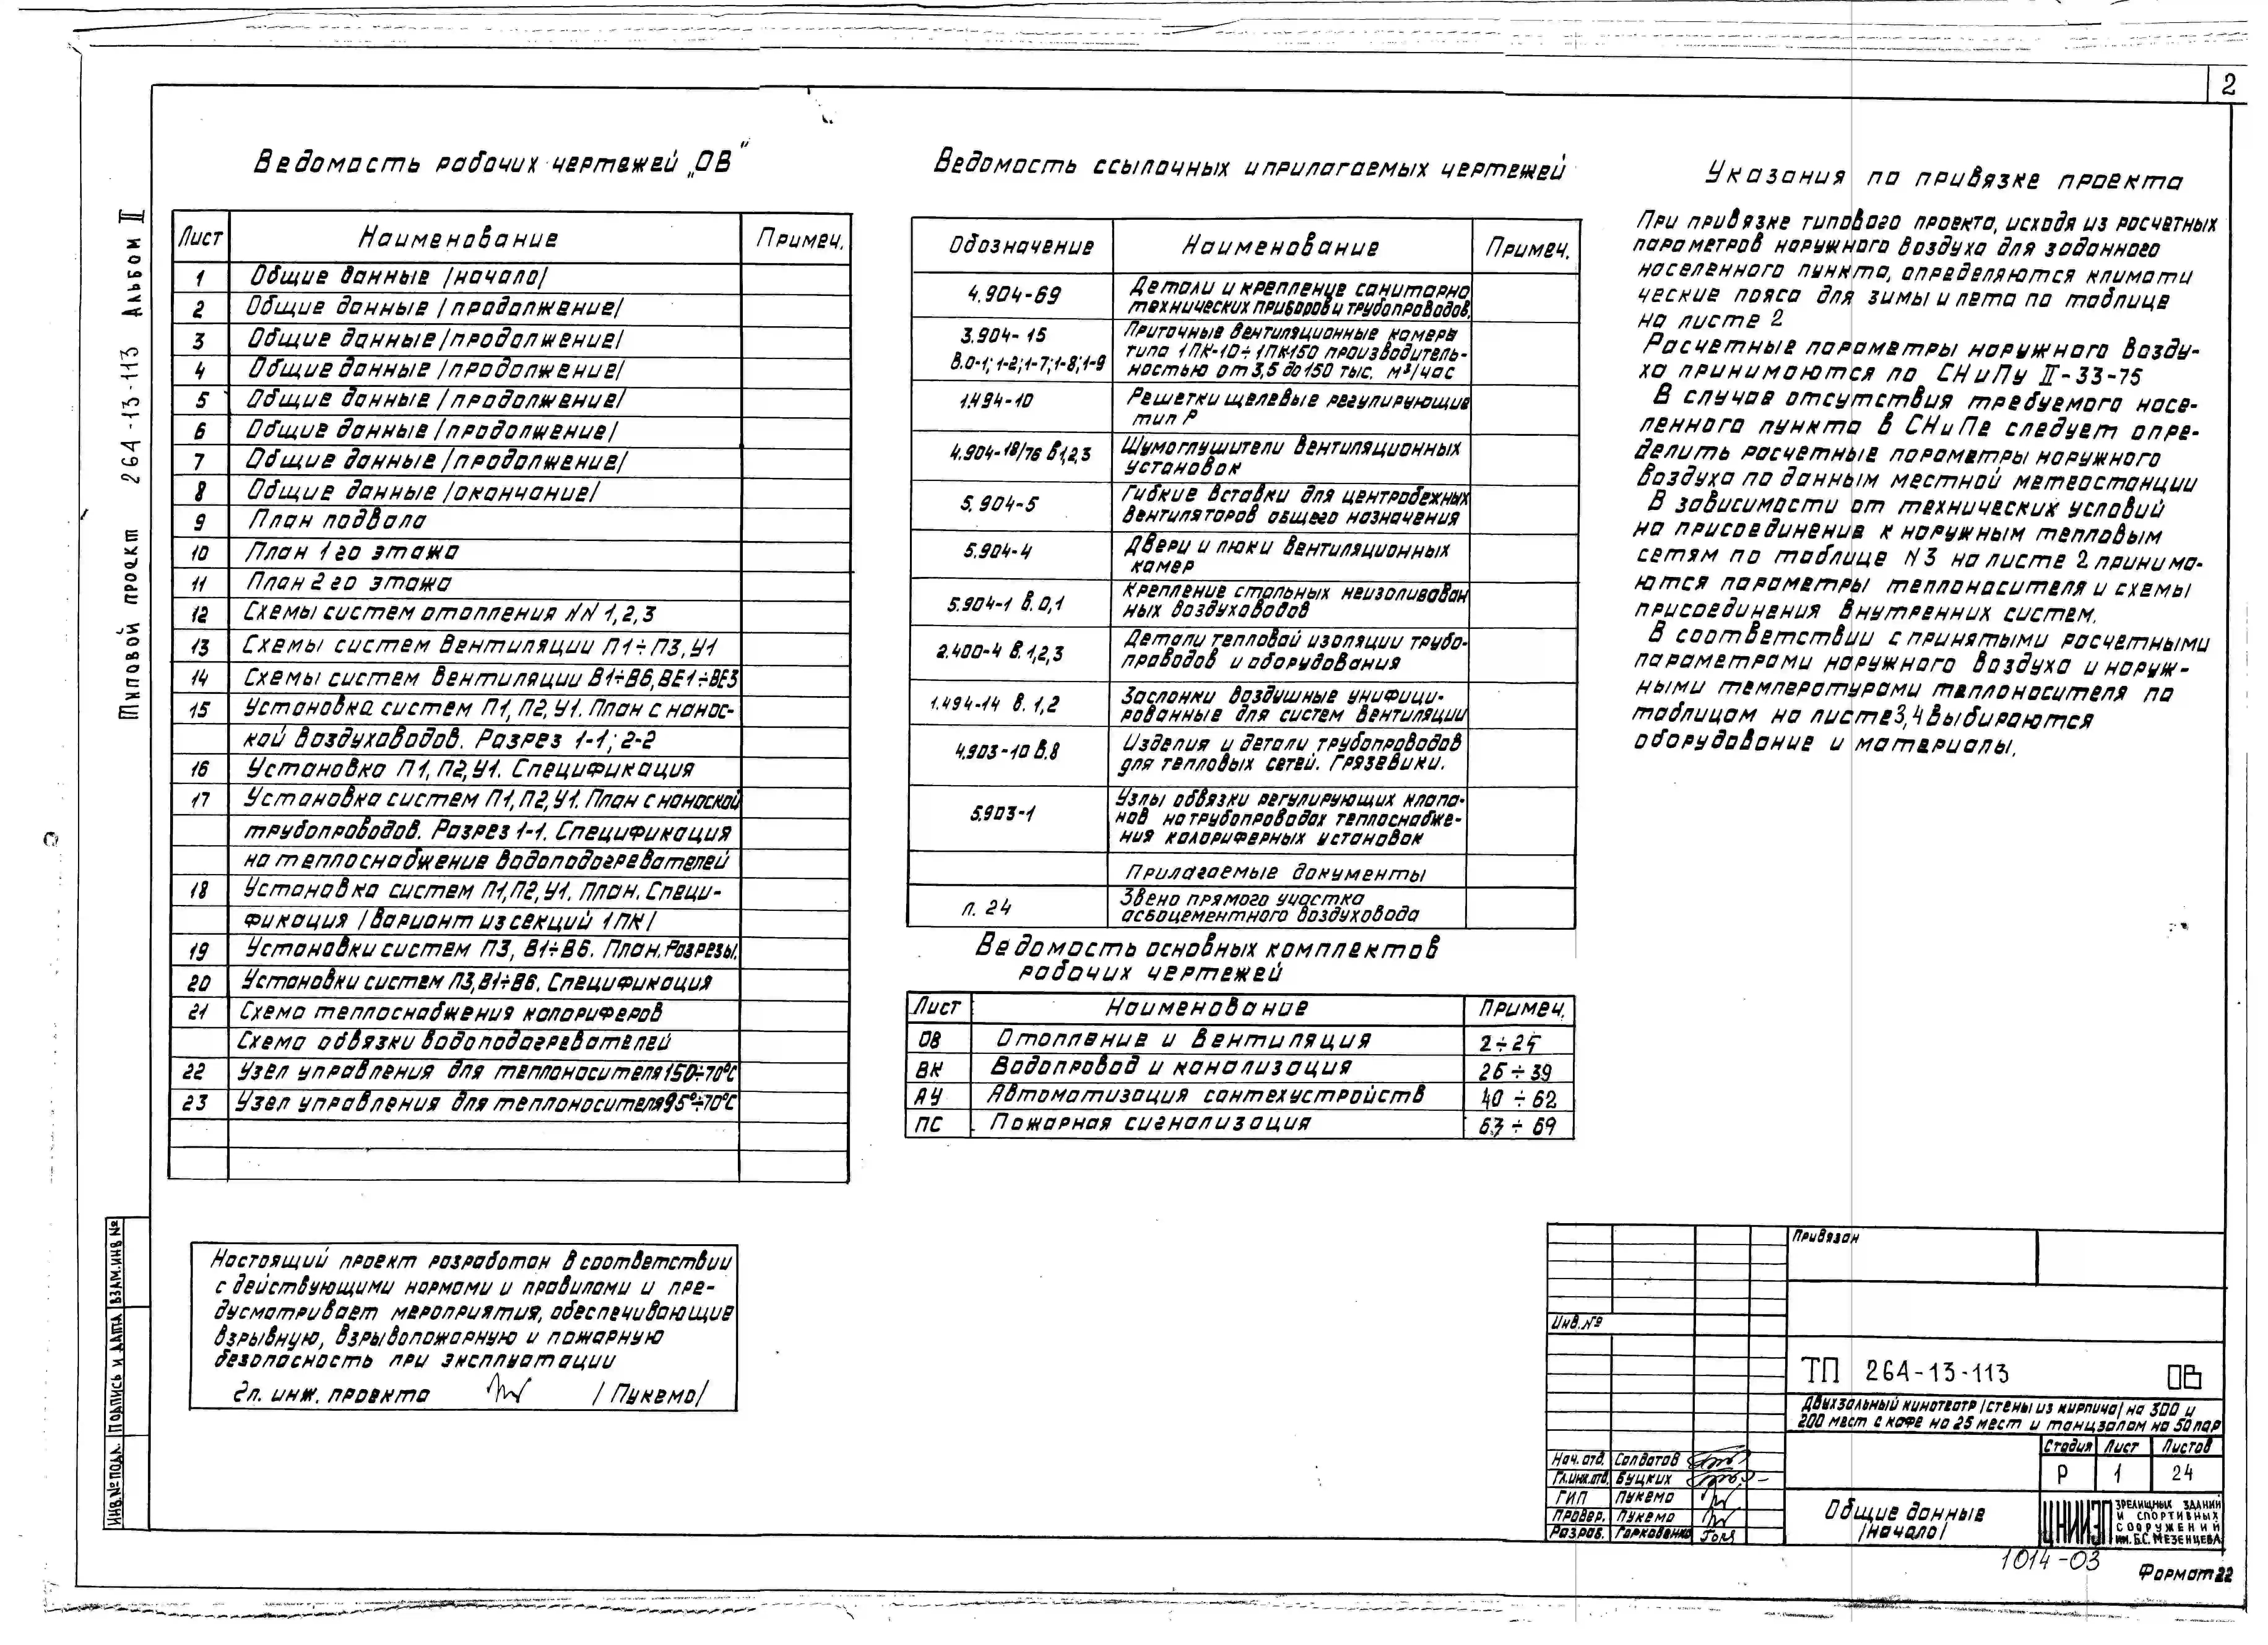 2
Типовой проект 264-13-113 Альбом II
Ведомость рабочих чертежей „ОВ"
Лист Наименование Примеч.
1 Общие данные /начало/
2 Общие данные /продолжение/
3 Общие данные /продолжение/
4 Общие данные /продолжение/
5 Общие данные /продолжение/
6 Общие данные /продолжение/
7 Общие данные /продолжение/
8 Общие данные /окончание/
9 План подвала
10 План 1го этажа
11 План 2го этажа
12 Схемы систем отопления NN 1,2,3
13 Схемы систем вентиляции П1÷П3, У1
14 Схемы систем вентиляции В1÷В6, ВЕ1÷ВЕ3
15 Установка систем П1, П2, У1. План с нанос-
кой воздуховодов. Разрез 1-1; 2-2
16 Установка П1, П2, У1. Спецификация
17 Установка систем П1, П2, У1. План с наноской
трубопроводов. Разрез 1-1. Спецификация
на теплоснабжение водоподогревателей
18 Установка систем П1, П2, У1. План. Специ-
фикация /Вариант из секций 1ПК/
19 Установки систем П3, В1÷В6. План. Разрезы.
20 Установки систем П3, В1÷В6. Спецификация
21 Схема теплоснабжения калориферов
Схема обвязки водоподогревателей
22 Узел управления для теплоносителя 150÷70°С
23 Узел управления для теплоносителя 95°÷70°С
Настоящий проект разработан в соответствии
с действующими нормами и правилами и пре-
дусматривает мероприятия, обеспечивающие
взрывную, взрывопожарную и пожарную
безопасность при эксплуатации
Гл. инж. проекта /Пукемо/
Ведомость ссылочных и прилагаемых чертежей
Обозначение Наименование Примеч.
4.904-69 Детали и крепление санитарно
технических приборов и трубопроводов.
3.904-15 Приточные вентиляционные камеры
в.0-1; 1-2; 1-7; 1-8; 1-9 типа 1ПК-10÷1ПК150 производитель-
ностью от 3,5 до 150 тыс. м³/час
1.494-10 Решетки щелевые регулирующие
тип Р
4.904-18/76 в1,2,3 Шумоглушители вентиляционных
установок
5.904-5 Гибкие вставки для центробежных
вентиляторов общего назначения
5.904-4 Двери и люки вентиляционных
камер
5.904-1 в.0,1 Крепление стальных неизолирован
ных воздуховодов
2.400-4 в.1,2,3 Детали тепловой изоляции трубо-
проводов и оборудования
1.494-14 в.1,2 Заслонки воздушные унифици-
рованные для систем вентиляции
4.903-10 в.8 Изделия и детали трубопроводов
для тепловых сетей. Грязевики.
5.903-1 Узлы обвязки регулирующих клапа-
нов на трубопроводах теплоснабже-
ния калориферных установок
Прилагаемые документы
л. 24 Звено прямого участка
асбоцементного воздуховода
Ведомость основных комплектов
рабочих чертежей
Лист Наименование Примеч.
ОВ Отопление и вентиляция 2÷25
ВК Водопровод и канализация 26÷39
АУ Автоматизация сантехустройств 40÷62
ПС Пожарная сигнализация 63÷69
Указания по привязке проекта
При привязке типового проекта, исходя из расчетных
параметров наружного воздуха для заданного
населенного пункта, определяются климати
ческие пояса для зимы и лета по таблице
на листе 2
Расчетные параметры наружного возду-
ха принимаются по СНиПу II-33-75
В случае отсутствия требуемого насе-
ленного пункта в СНиПе следует опре-
делить расчетные параметры наружного
воздуха по данным местной метеостанции
В зависимости от технических условий
на присоединение к наружным тепловым
сетям по таблице N3 на листе 2 принима-
ются параметры теплоносителя и схемы
присоединения внутренних систем.
В соответствии с принятыми расчетными
параметрами наружного воздуха и наруж-
ными температурами теплоносителя по
таблицам на листе 3,4 выбираются
оборудование и материалы.
ИНВ.№ПОДЛ. ПОДПИСЬ И ДАТА ВЗАМ.ИНВ №
Привязан
Инв.№
ТП 264-13-113 ОВ
Двухзальный кинотеатр /стены из кирпича/ на 300 и
200 мест с кафе на 25 мест и танцзалом на 50 пар
Стадия Лист Листов
Р 1 24
Нач. отд. Солдатов
Гл.инж.отд. Буцких
ГИП Пукемо
Провер. Пукемо
Разраб. Горковенко
Общие данные
/начало/
ЦНИИЭП ЗРЕЛИЩНЫХ ЗДАНИЙ
И СПОРТИВНЫХ
СООРУЖЕНИЙ
ИМ. Б.С. МЕЗЕНЦЕВА
1014-03
Формат 22